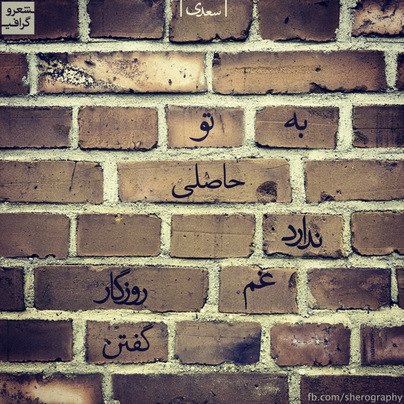 شعرو
گرافی
| سعدی |
به تو
حاصلی
ندارد
غم روزگار
گفتن
fb.com/sherography